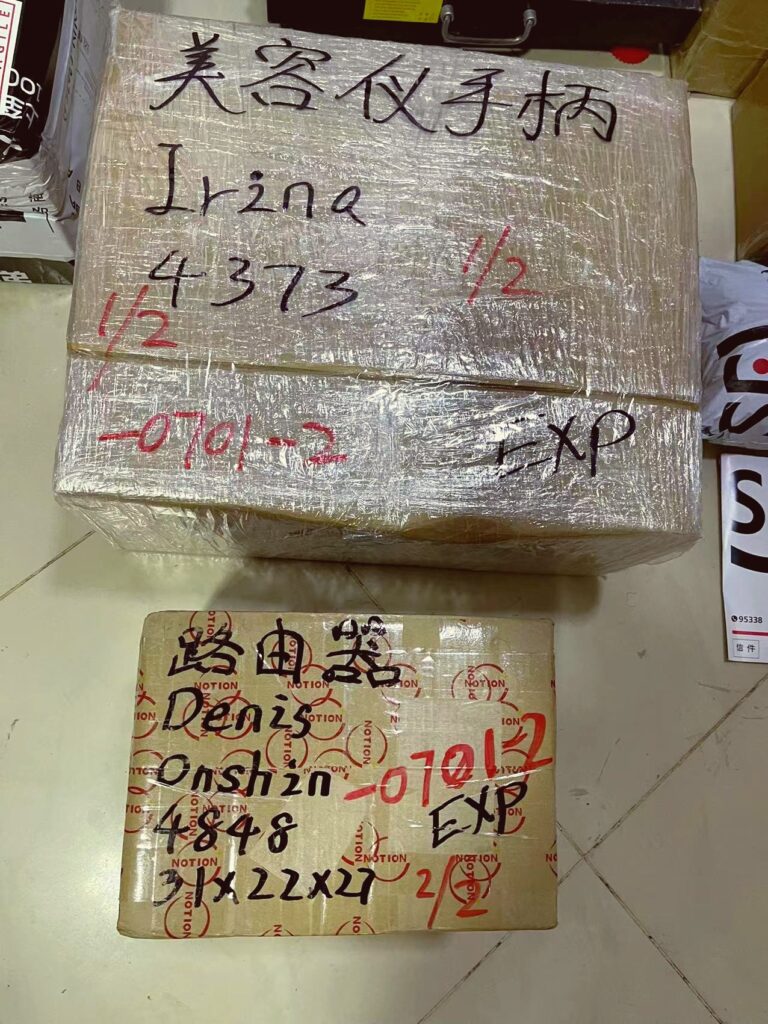 美容仪手柄
Irina
4373
1/2
1/2
-0701-2
EXP
路由器
Denis
onshin
4848
31x22x27
-0701-2
EXP
2/2
NOTION
NOTION
NOTION
NOTION
NOTION
NOTION
NOTION
NOTION
95338
信件